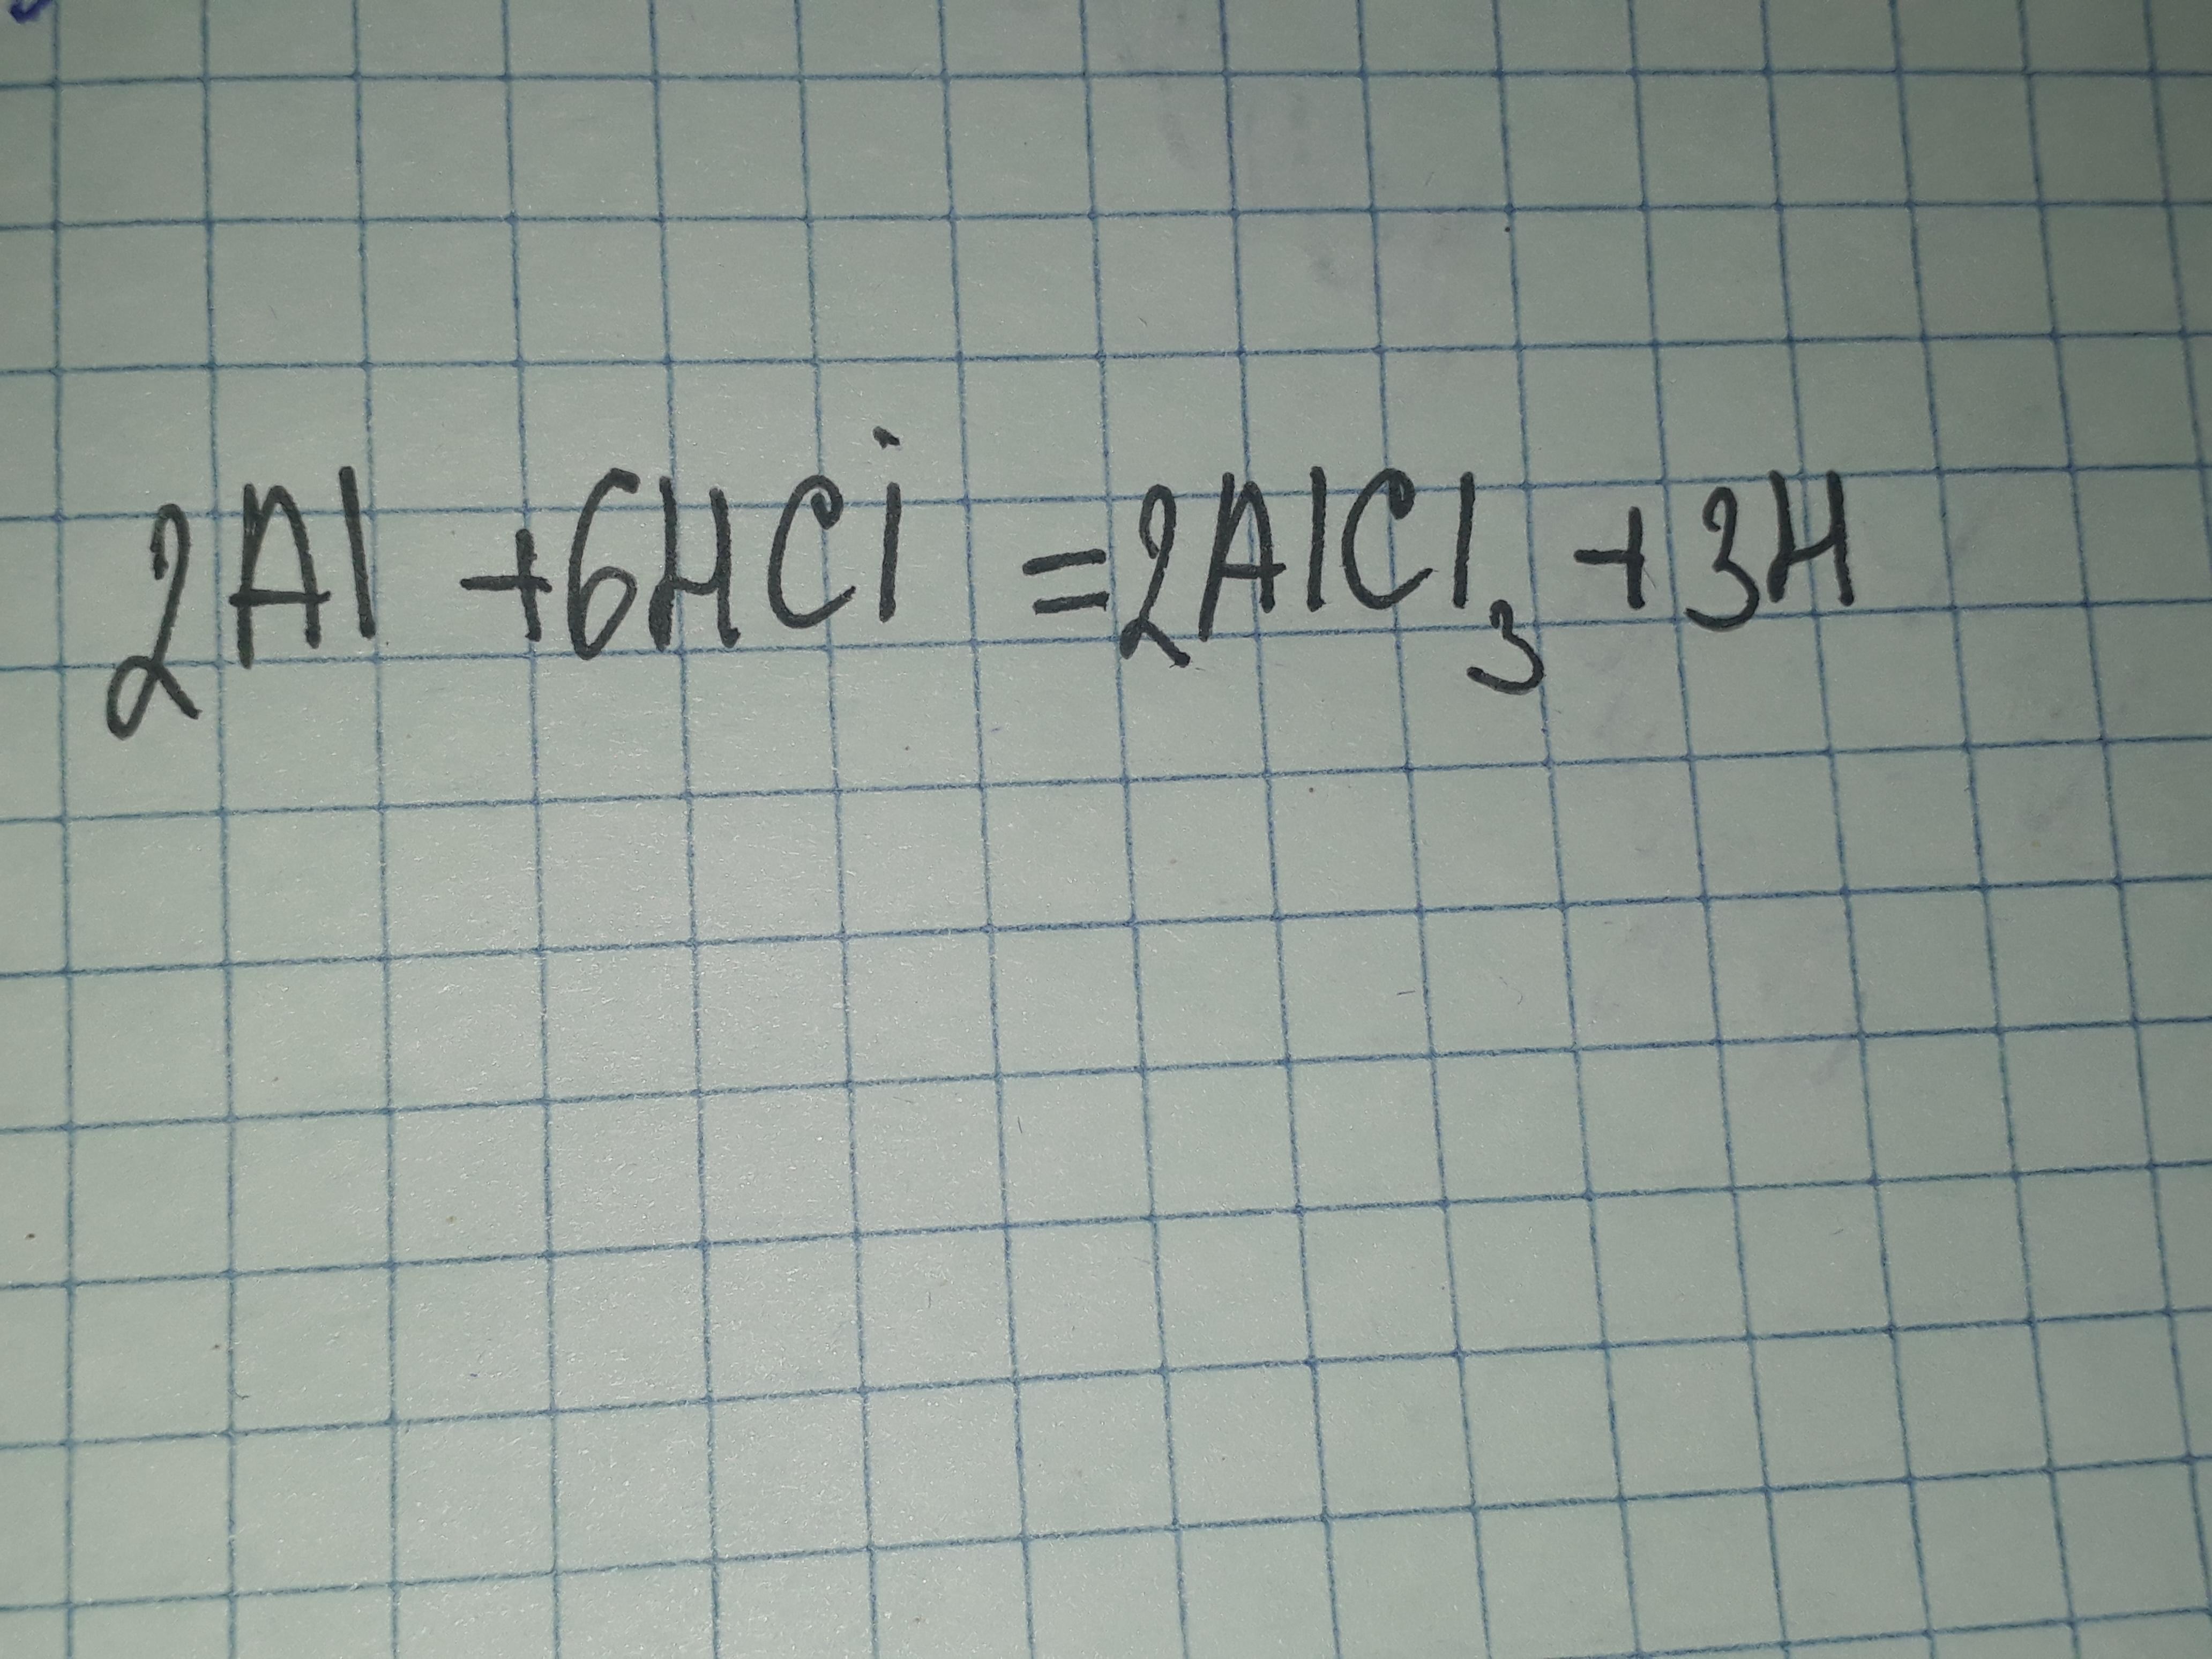 2Al + 6HCi = 2AlCl₃ + 3H